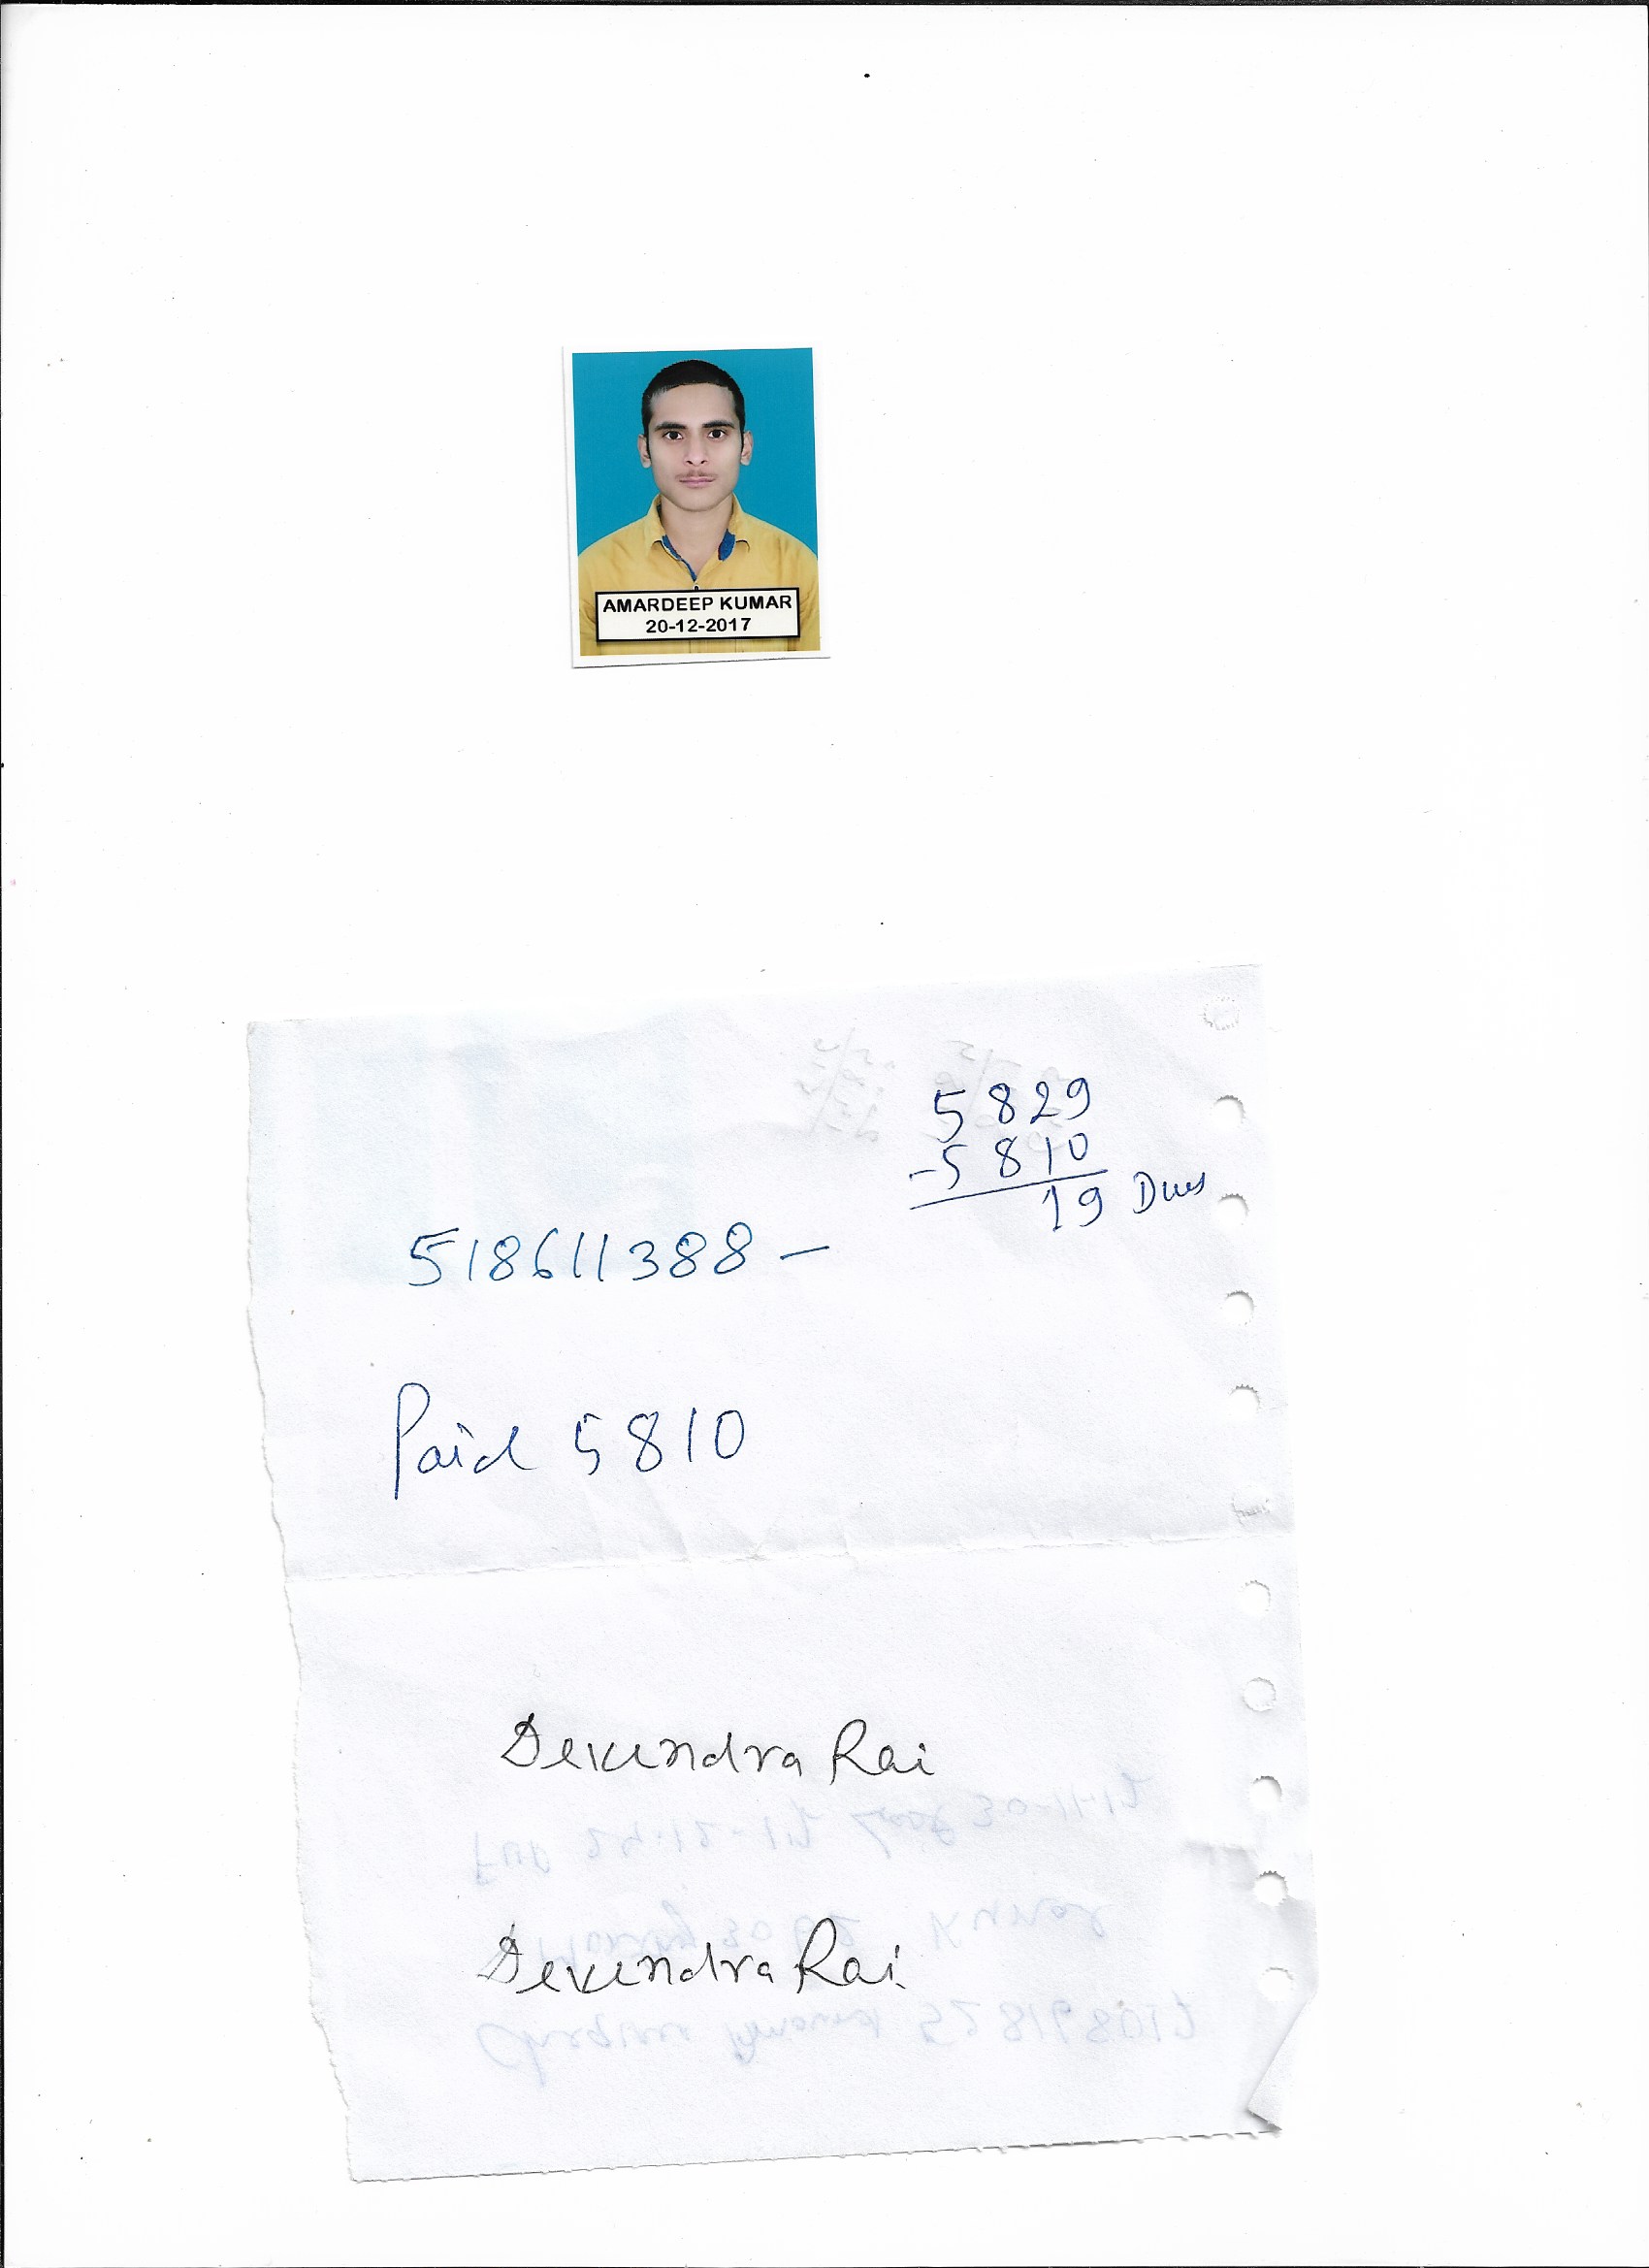 AMARDEEP KUMAR
20-12-2017
5829
-5810
19 Dues
518611388 -
Paid 5810
Devendra Rai
Devendra Rai